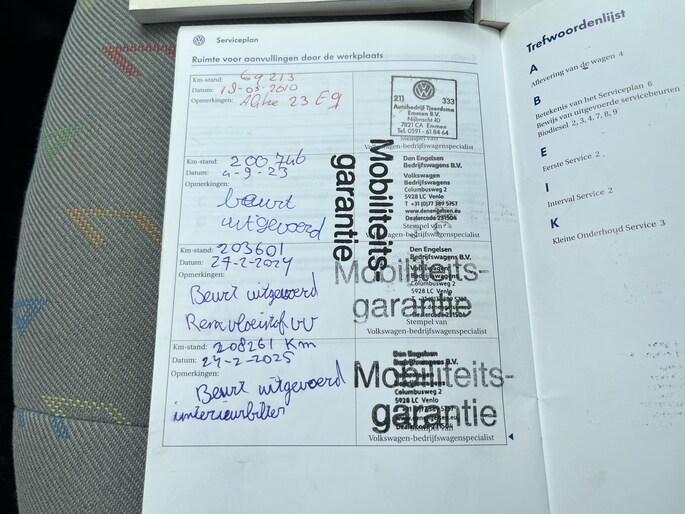 Serviceplan
Ruimte voor aanvullingen door de werkplaats
Km-stand: 69213
Datum: 18-03-2010
Opmerkingen:
211 333
Autobedrijf Tjeerdsma
Emmen B.V.
Nijbracht 10
7821 CA Emmen
Tel. 0591 - 61 84 64
Stempel van
Volkswagen-bedrijfswagenspecialist
Km-stand: 200746
Datum: 4-9-23
Opmerkingen:
beurt
uitgevoerd
Den Engelsen
Bedrijfswagens B.V.
Volkswagen
Bedrijfswagens
Columbusweg 2
5928 LC Venlo
T +31 (0)77 389 5757
www.denengelsen.eu
Dealercode 231504
Stempel van
Volkswagen-bedrijfswagenspecialist
Mobiliteits-
garantie
Km-stand: 203601
Datum: 27-2-2024
Opmerkingen:
Beurt uitgevoerd
Remvloeistof VV
Den Engelsen
Bedrijfswagens B.V.
Columbusweg 2
5928 LC Venlo
Dealercode 231504
Stempel van
Volkswagen-bedrijfswagenspecialist
Mobiliteits-
garantie
Km-stand: 208261 Km
Datum: 24-2-2025
Opmerkingen:
Beurt uitgevoerd
interieurfilter
Den Engelsen
Columbusweg 2
5928 LC Venlo
Stempel van
Volkswagen-bedrijfswagenspecialist
Mobiliteits-
garantie
Trefwoordenlijst
A
Aflevering van de wagen 4
B
Betekenis van het Serviceplan 6
Bewijs van uitgevoerde servicebeurten
Biodiesel 2, 3, 4, 7, 8, 9
E
Eerste Service 2
I
Interval Service 2
K
Kleine Onderhoud Service 3